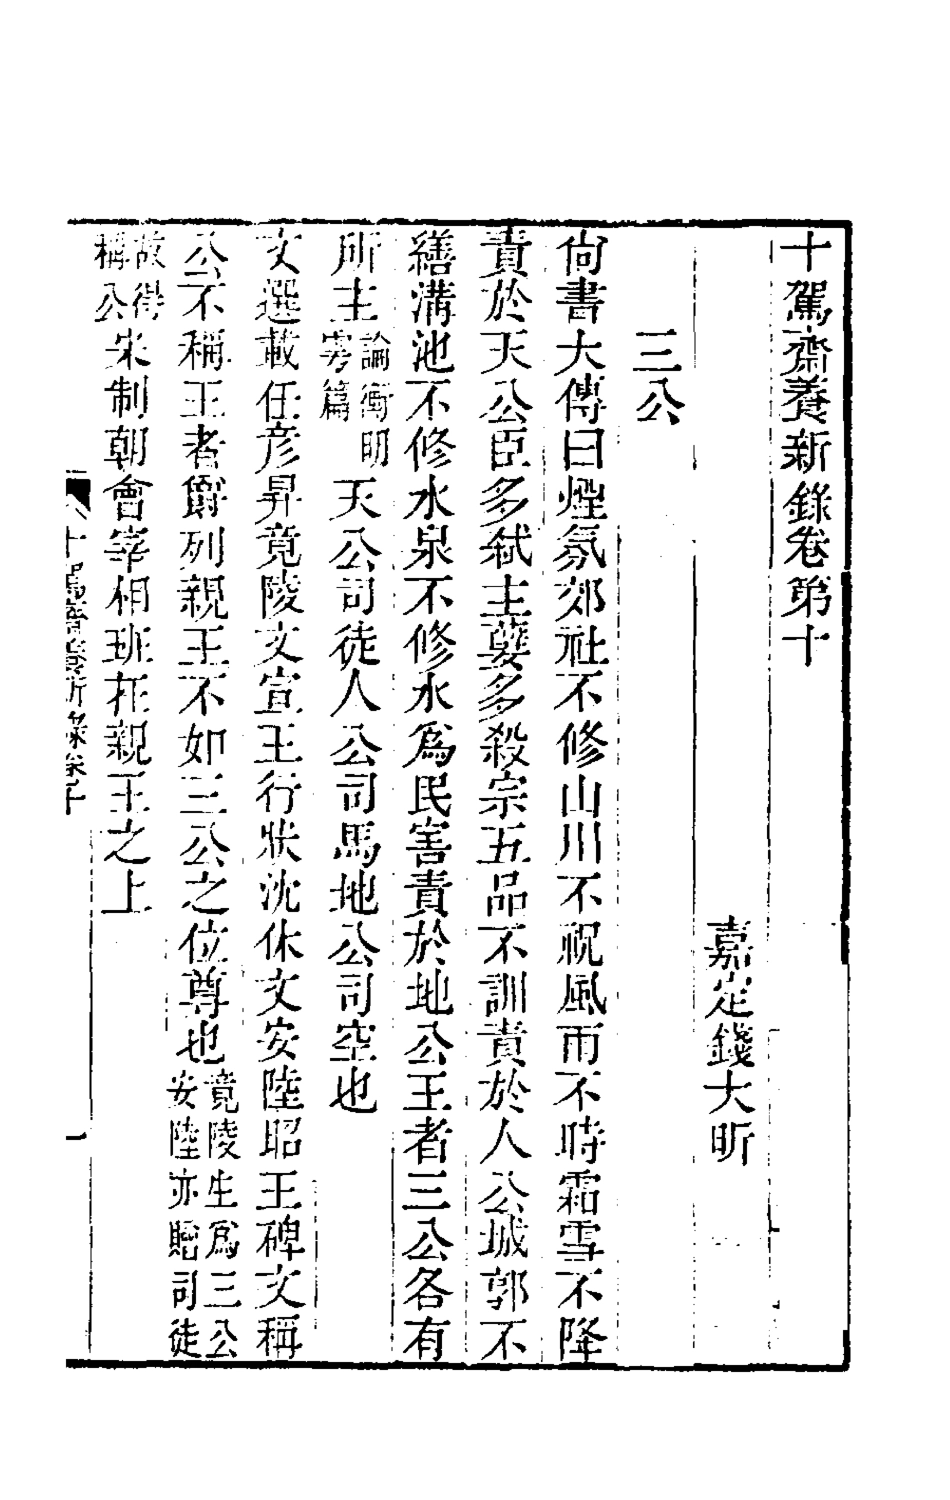 十駕齋養新錄卷第十
嘉定錢大昕
三公
尙書大傳曰煙氛郊社不修山川不祝風雨不時霜雪不降
責於天公臣多弒主孽多殺宗五品不訓責於人公城郭不
繕溝池不修水泉不修水爲民害責於地公王者三公各有
所主論衡明雩篇天公司徒人公司馬地公司空也
文選載任彥昇竟陵文宣王行狀沈休文安陸昭王碑文稱
公不稱王者爵列親王不如三公之位尊也竟陵生爲三公安陸亦贈司徒
故得稱公宋制朝會宰相班在親王之上
十駕齋養新錄卷十
一